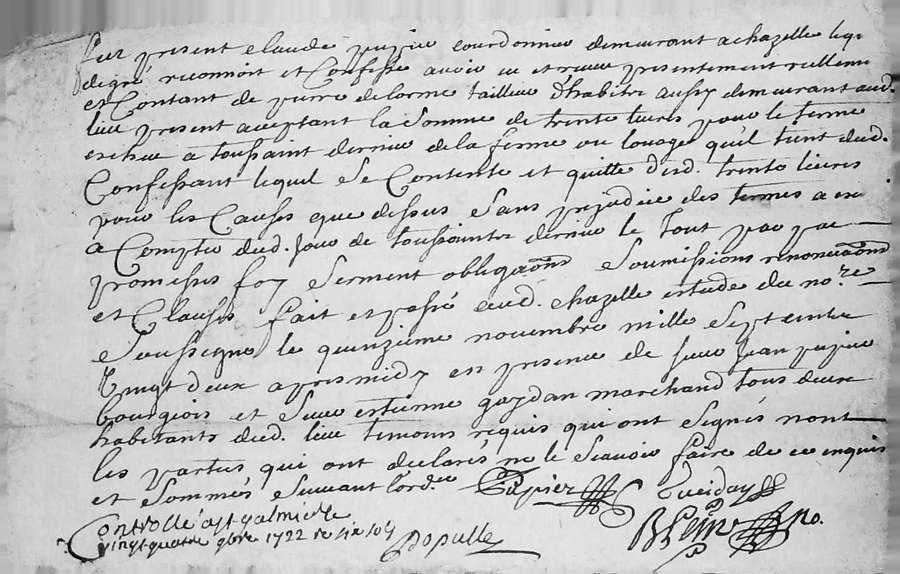 fut present claude pupier courdonnier demeurant a chazelle lequel
degré reconnoit et Confesse avoir eu et receu presentement reellement
et Contant de pierre delorme tailleur d'habitre aussy demeurant aud.
lieu present acceptant la Somme de trente livres pour le terme
escheu a toussaint dernier de la ferme ou louage qu'il tient dud.
Confessant lequel Se Contente et quitte desd. trente livres
pour les Causes que dessus Sans prejudice des termes a es
a Compter dud. Jour de toussaintz dernier le tout par
promesses foy Serment obligaons Soumissions renonciaons
et Clauses fait et passé aud. chazelle estude du no.re
Soussigné le quinzieme novembre mille Sept centz
Vingt deux apres midy en presence de Sieur Jean pupier
bourgeois et Sieur estienne gaydan marchand tous deux
habitants dud. lieu temoins requis qui ont Signés nont
les parties qui ont declarés ne le Scavoir faire de ce enquis
et Sommés Suivant l'ord.ce Pupier
Controllé a st galmier le
vingt quatre 9bre 1722